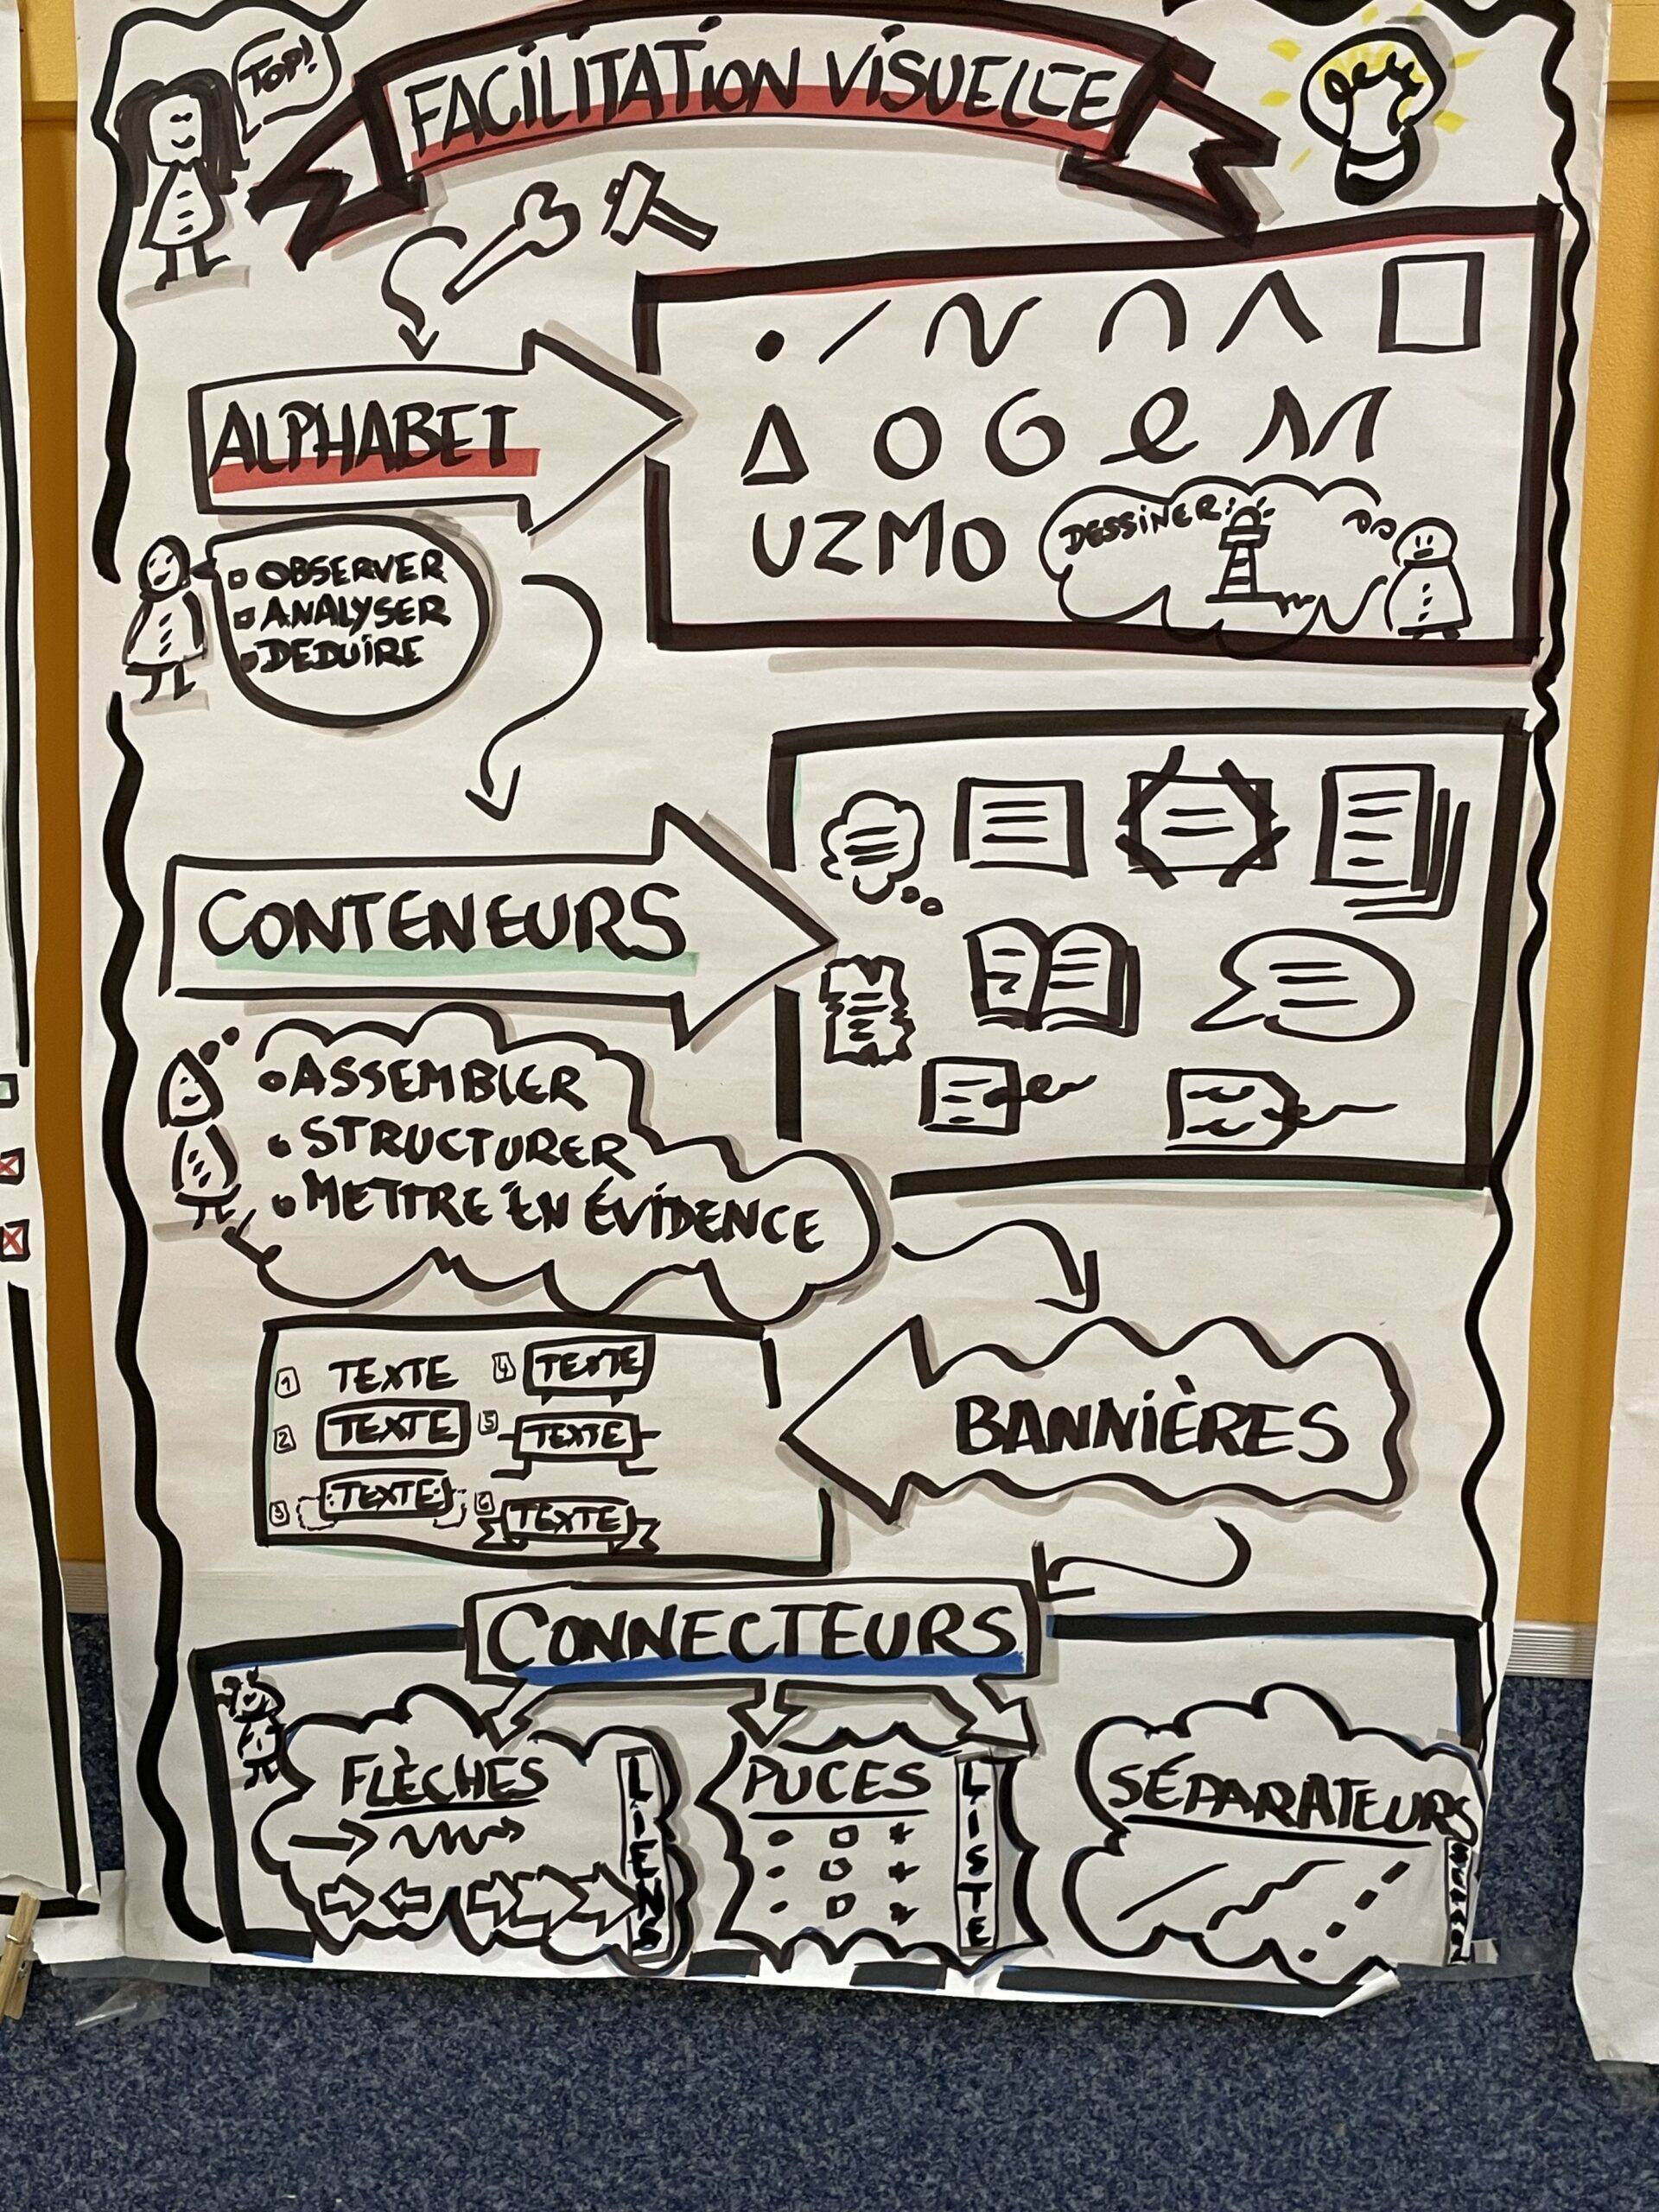 TOP!
FACILITATION VISUELLE
ALPHABET
UZMO
DESSINER:
OBSERVER
ANALYSER
DEDUIRE
CONTENEURS
ASSEMBLER
STRUCTURER
METTRE EN ÉVIDENCE
BANNIÈRES
1 TEXTE
2 TEXTE
3 TEXTE
4 TEXTE
5 TEXTE
6 TEXTE
CONNECTEURS
FLÈCHES
LIENS
PUCES
LISTE
SÉPARATEURS